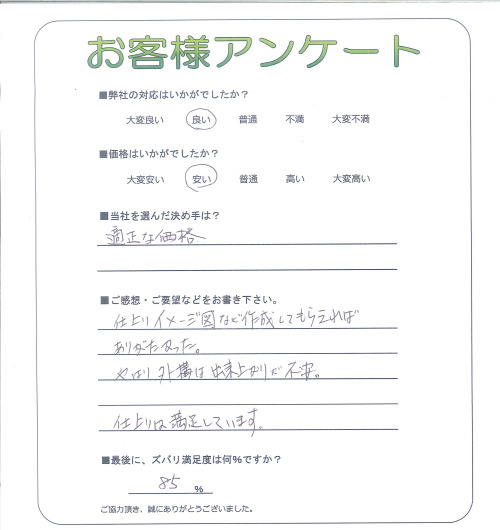 お客様アンケート
■弊社の対応はいかがでしたか？
大変良い 良い 普通 不満 大変不満
■価格はいかがでしたか？
大変安い 安い 普通 高い 大変高い
■当社を選んだ決め手は？
適正な価格
■ご感想・ご要望などをお書き下さい。
仕上りイメージ図など作成してもらえれば
ありがたかった。
やはり外構は出来上がりが不安。
仕上りは満足しています。
■最後に、ズバリ満足度は何％ですか？
85 ％
ご協力頂き、誠にありがとうございました。